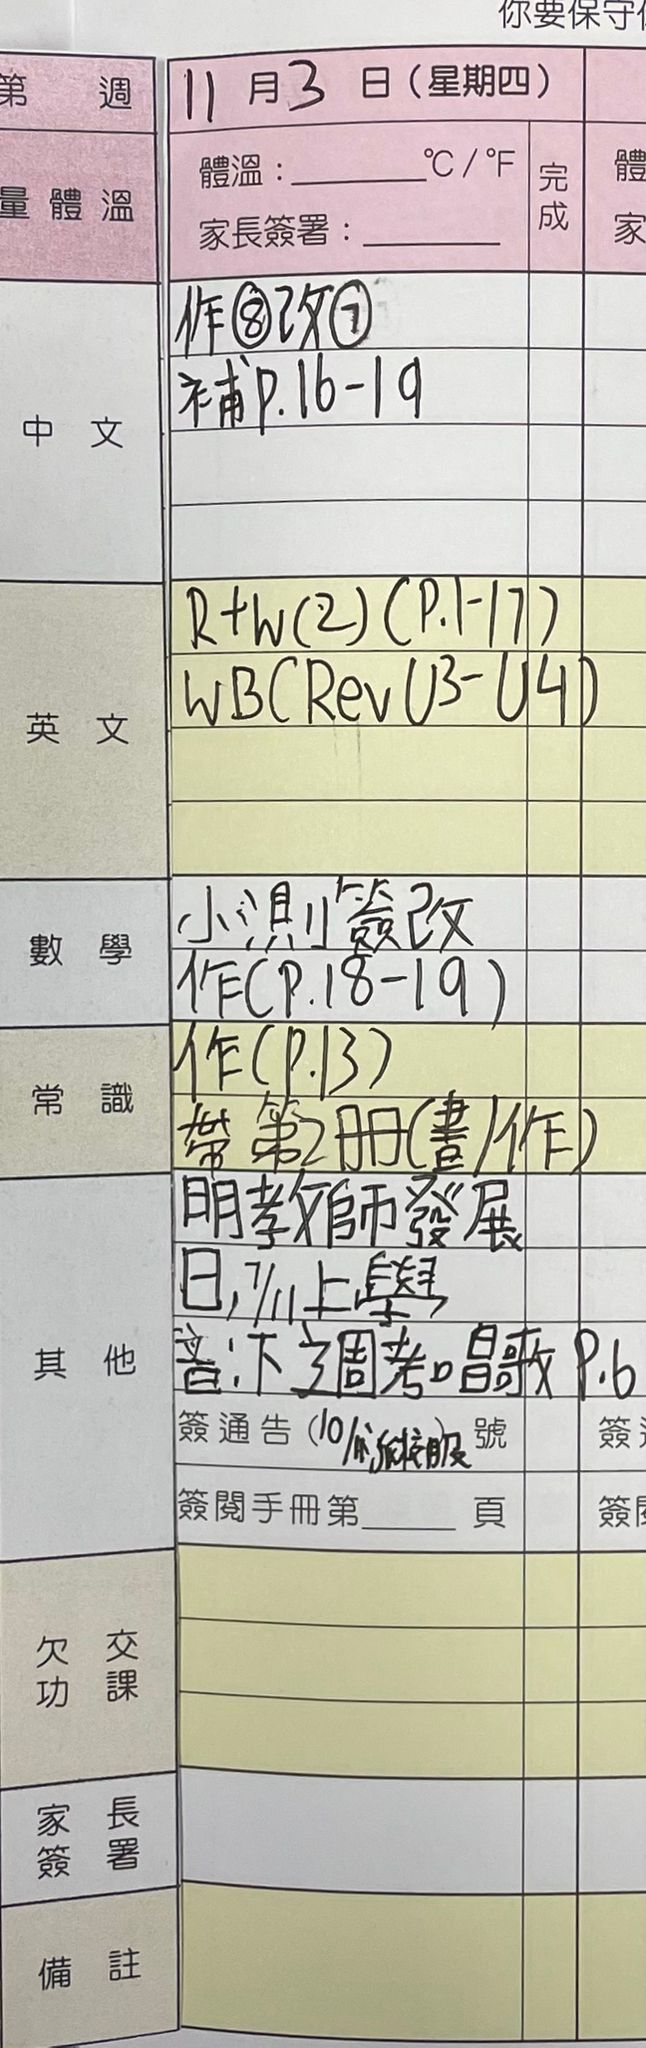 你要保守
第 週
11月3日(星期四)
量體溫
體溫:______°C/°F
完成
體
家長簽署:______
家
中文
作⑧改⑦
補P.16-19
英文
R+W(2)(P.1-17)
WB(Rev U3-U4)
數學
小測簽改
作(P.18-19)
常識
作(P.13)
帶第2冊(書/作)
其他
明教師發展
日,7/11上學
音:下周考唱歌P.6
簽通告(10/ 校服)號
簽
簽閱手冊第____頁
簽閱
欠交功課
家長簽署
備註